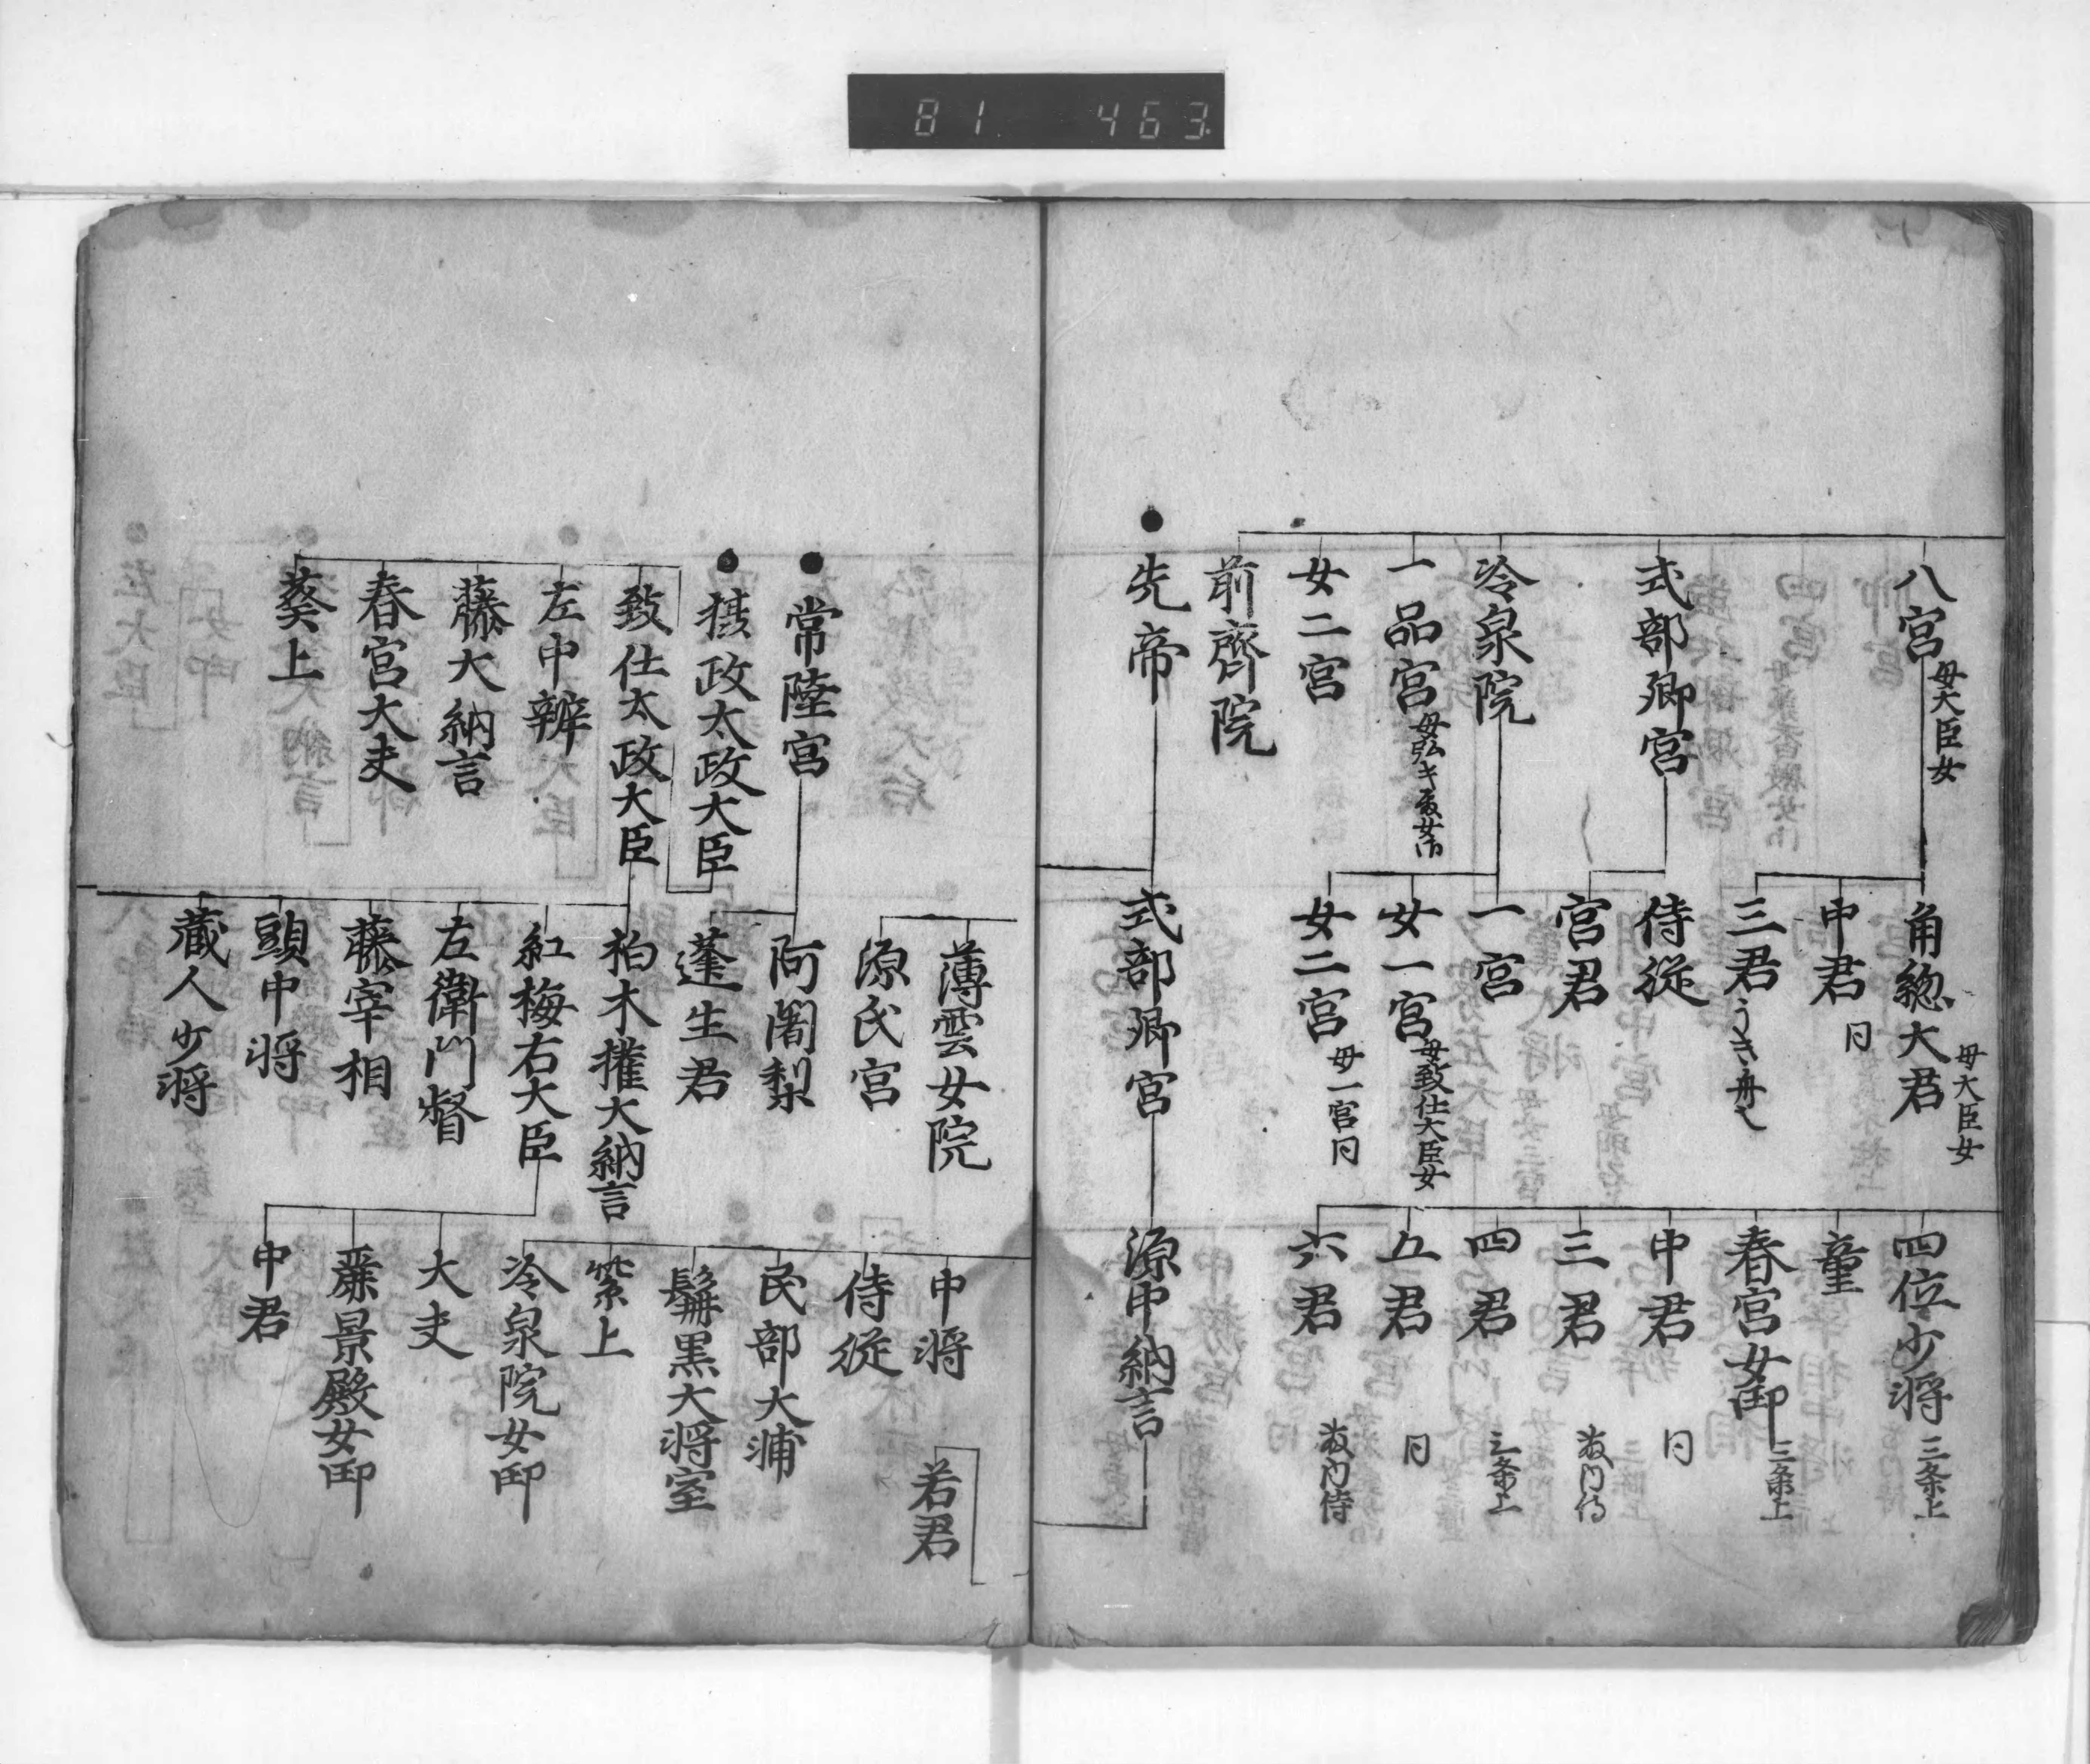 81 463
八宮 母大臣女
式部卿宮
冷泉院
一品宮
女二宮
前齋院
先帝
角総大君 母大臣女
中君 同
三君
侍従
宮君
一宮
女一宮 母致仕大臣女
女二宮 母一宮同
式部卿宮
四位少将 三条上
童
春宮女御 三条上
中君 同
三君
四君 三条上
五君 同
六君
源中納言
常陸宮
摂政太政大臣
致仕太政大臣
左中辨
藤大納言
春宮大夫
葵上
薄雲女院
源氏宮
阿闍梨
蓬生君
柏木権大納言
紅梅右大臣
左衛門督
藤宰相
頭中将
蔵人少将
中将
若君
侍従
民部大浦
鬚黒大将室
紫上
冷泉院女御
大夫
麗景殿女御
中君